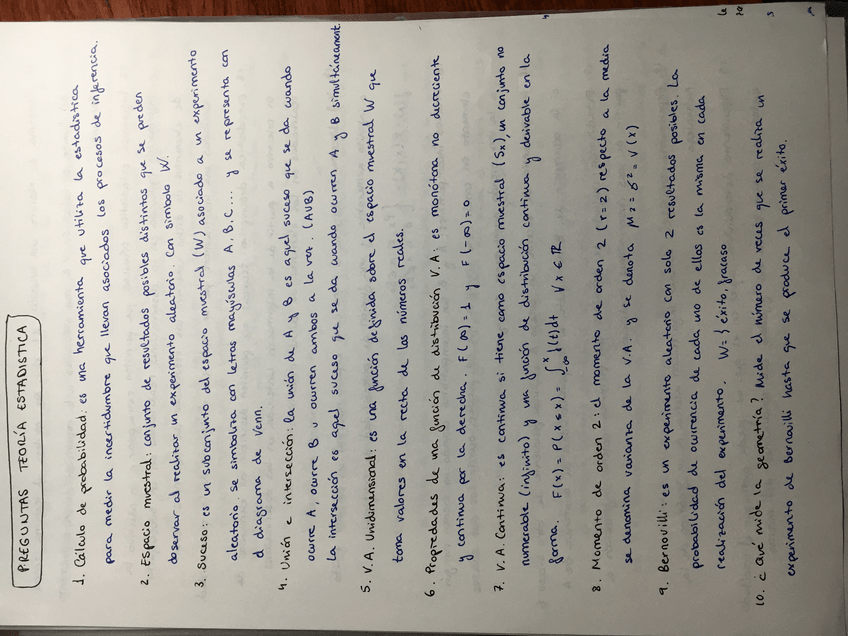 PREGUNTAS TEORÍA ESTADISTICA
1. Cálculo de probabilidad: es una herramienta que utiliza la estadística
para medir la incertidumbre que llevan asociados los procesos de inferencia.
2. Espacio muestral: conjunto de resultados posibles distintos que se pueden
observar al realizar un experimento aleatorio. Con símbolo W.
3. Suceso: es un subconjunto del espacio muestral (W) asociado a un experimento
aleatorio. Se simboliza con letras mayúsculas A, B, C... y se representa con
el diagrama de Venn.
4. Unión e intersección: la unión de A y B es aquel suceso que se da cuando
ocurre A, ocurre B u ocurren ambos a la vez. (AUB)
la intersección es aquel suceso que se da cuando ocurren A y B simultáneament.
5. V.A. Unidimensional: es una función definida sobre el espacio muestral W que
toma valores en la recta de los números reales.
6. Propiedades de una función de distribución V.A: es monótona no decreciente
y continua por la derecha. F(∞)=1 y F(-∞)=0.
7. V.A. Continua: es continua si tiene como espacio muestral (Sx), un conjunto no
numerable (infinito) y una función de distribución continua y derivable en la
forma. F(x) = P(X≤x) = ∫_{-∞}^{x} f(t)dt ∀x∈ℝ
8. Momento de orden 2: el momento de orden 2 (r=2) respecto a la media
se denomina varianza de la V.A. y se denota μ2 = σ² = V(x)
9. Bernouilli: es un experimento aleatorio con solo 2 resultados posibles. La
probabilidad de ocurrencia de cada uno de ellos es la misma en cada
realización del experimento. W = } éxito, fracaso
10. ¿Qué mide la geometría? Mide el número de veces que se realiza un
experimento de Bernouilli hasta que se produce el primer éxito.